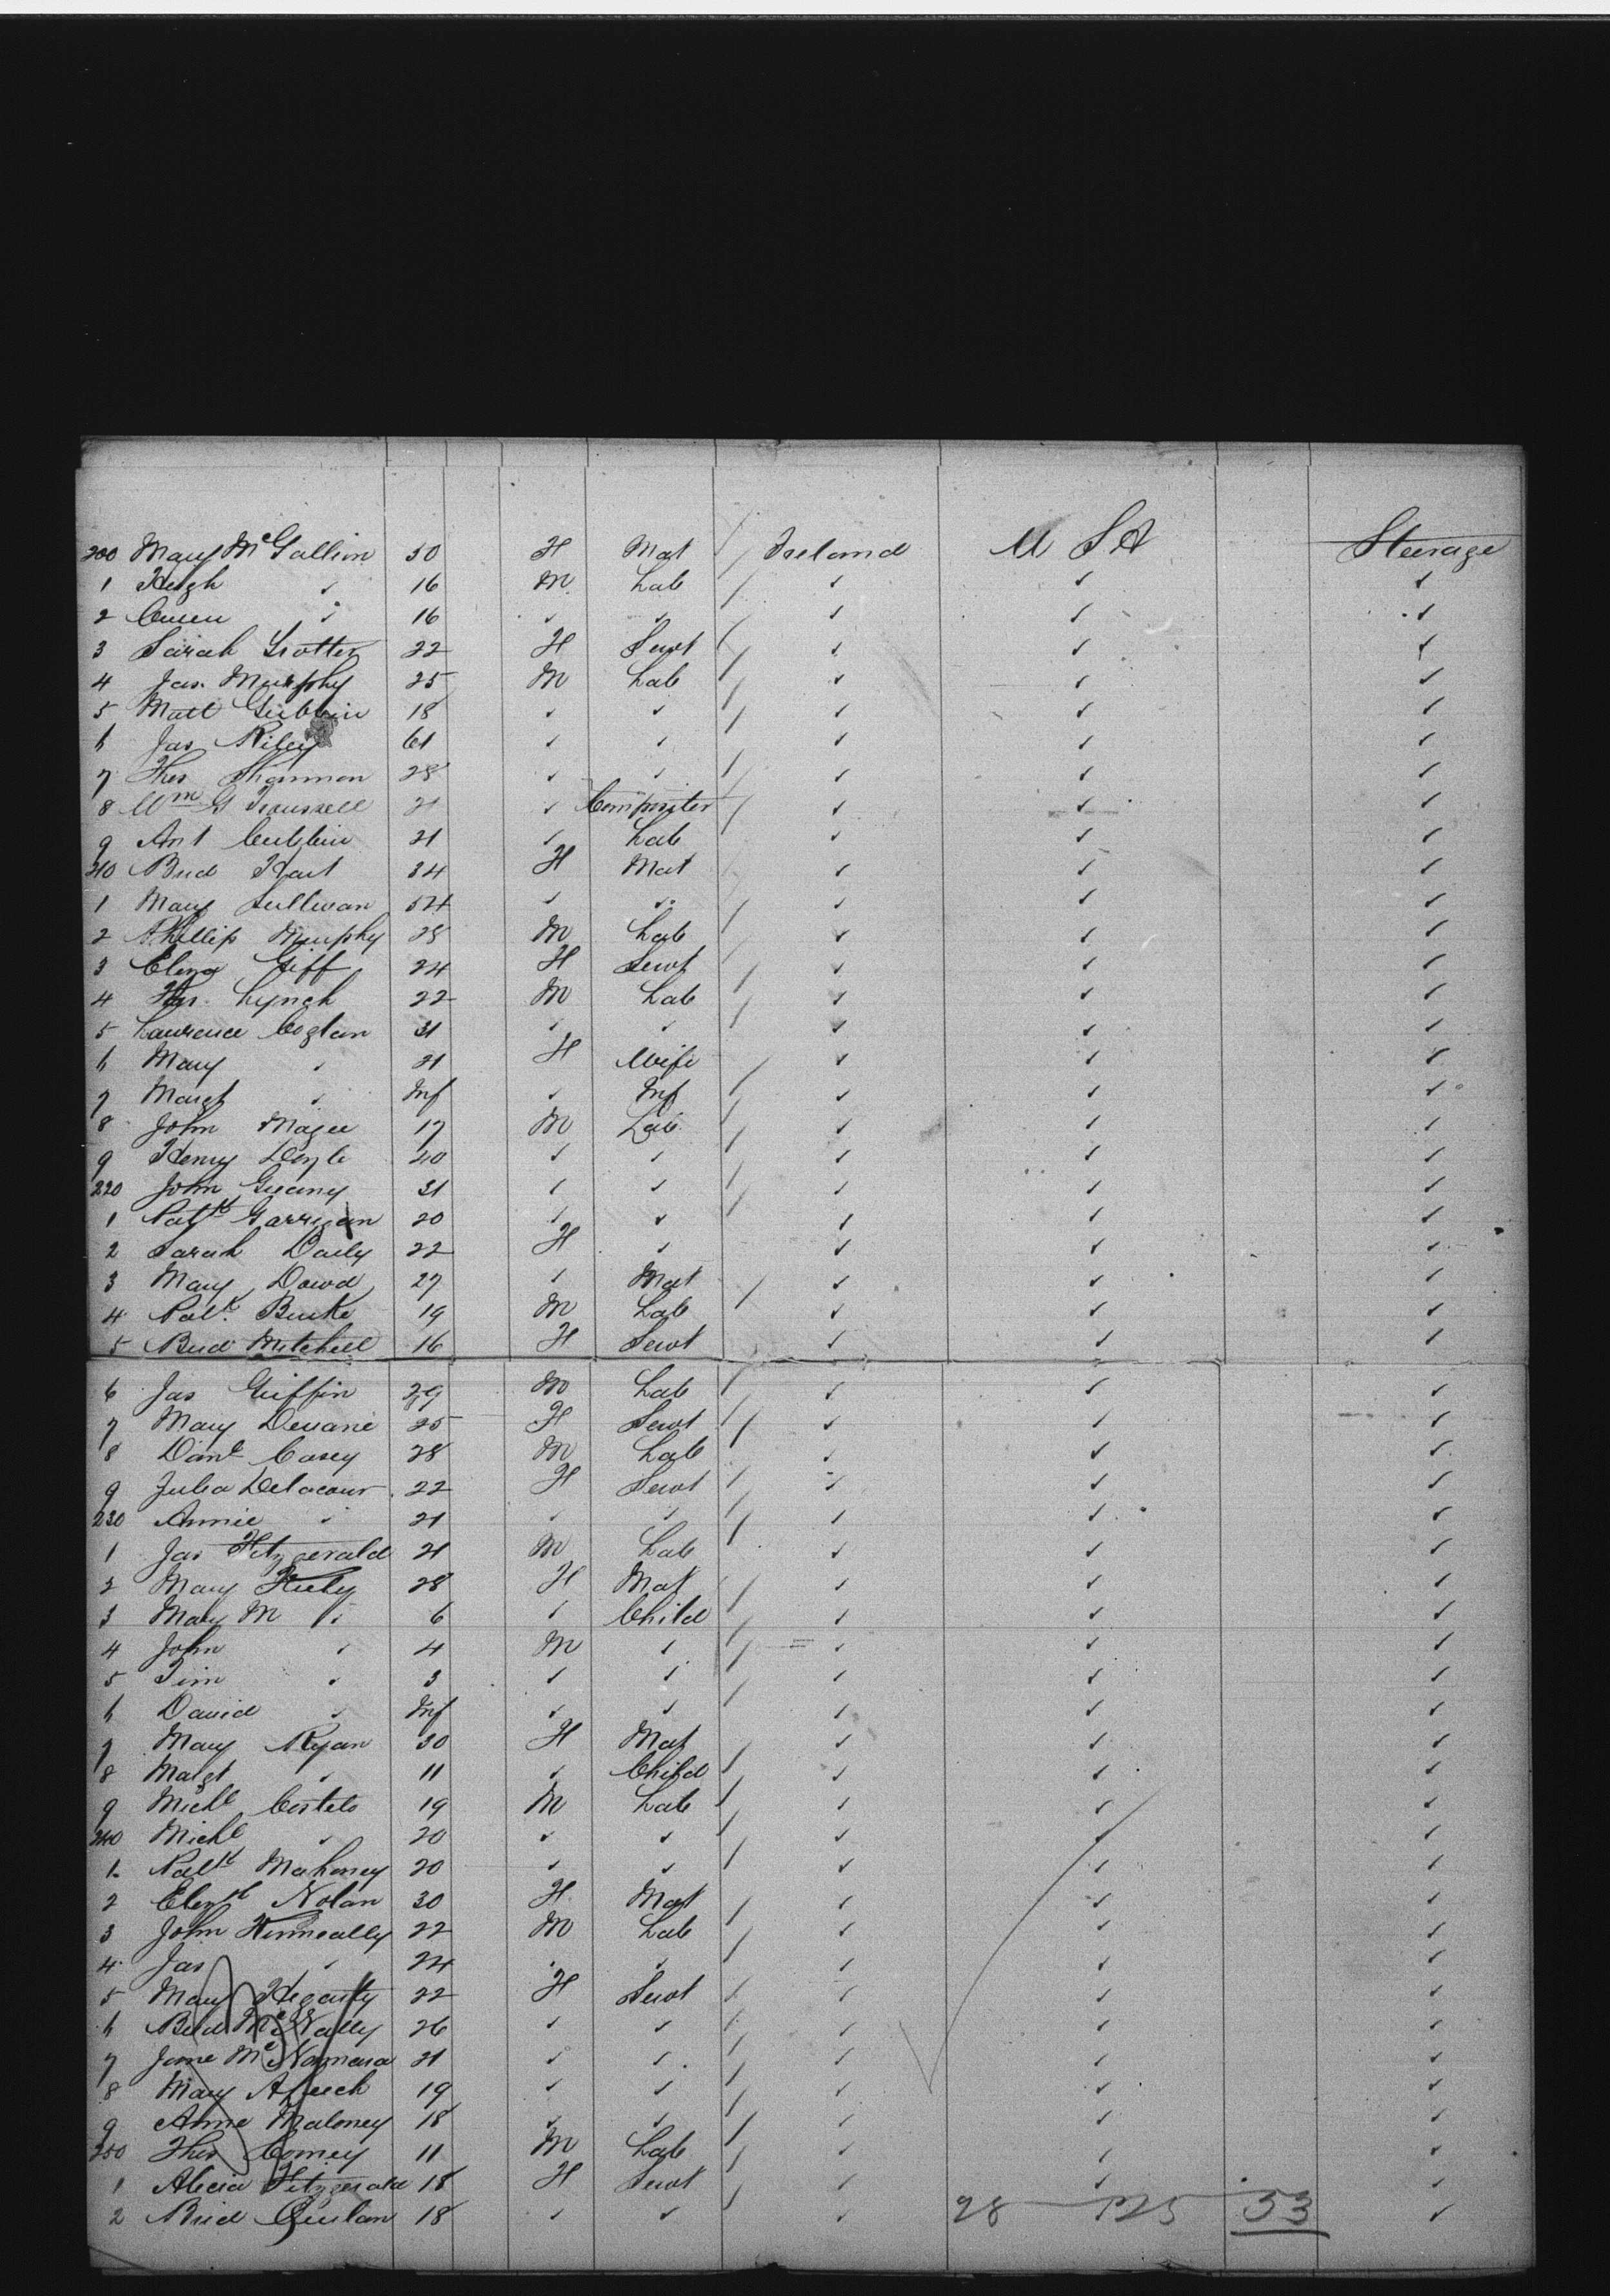 200 Mary McGallion 50 F Mat Ireland U S A Steerage
1 Hugh " 16 M Lab " " "
2 Owen " 16 " " " " "
3 Sarah Trotter 22 F Servt " " "
4 Jas. Murphy 25 M Lab " " "
5 Matt Gibbin 18 " " " " "
6 Jas Riley 61 " " " " "
7 Thos Shannon 28 " " " " "
8 Wm G 21 " Compositer " " "
9 Ant Cubbin 21 " Lab " " "
210 Brid Hart 34 F Mat " " "
1 Mary Sullivan 54 " " " " "
2 Phillip Murphy 28 M Lab " " "
3 Eliza Giff 24 F Servt " " "
4 Thos. Lynch 22 M Lab " " "
5 Laurence Coglan 31 " " " " "
6 Mary " 21 F Wife " " "
7 Margt " Inf " Inf " " "
8 John Magee 17 M Lab " " "
9 Henry Doyle 40 " " " " "
220 John Geany 31 " " " " "
1 Patk Garrigan 20 " " " " "
2 Sarah Daily 22 F " " " "
3 Mary Dowd 27 " Mat " " "
4 Patk. Burke 19 M Lab " " "
5 Brid Mitchell 16 F Servt " " "
6 Jas Griffin 29 M Lab " " "
7 Mary Devane 25 F Servt " " "
8 Danl Casey 28 M Lab " " "
9 Julia Delacour 22 F Servt " " "
230 Annie " 21 " " " " "
1 Jas Fitzgerald 21 M Lab " " "
2 Mary 28 F Mat " " "
3 Mary M " 6 " Child " " "
4 John " 4 M " " " "
5 Tim " 3 " " " " "
6 David " Inf " " " " "
7 Mary Ryan 30 F Mat " " "
8 Margt " 11 " Child " " "
9 Michl Costelo 19 M Lab " " "
240 Michl " 20 " " " " "
1 Patk Mahoney 20 " " " " "
2 Elizth Nolan 30 F Mat " " "
3 John Kinneally 22 M Lab " " "
4 Jas " 24 " " " " "
5 Mary Hegarty 22 F Servt " " "
6 Brid McNally 26 " " " " "
7 Jane McNamara 21 " " " " "
8 Mary 19 " " " " "
9 Anne Maloney 18 " " " " "
250 Thos Comey 11 M Lab " " "
1 Alicia Fitzgerald 18 F Servt " " "
2 Brid Quilan 18 " " " "
28 125 53